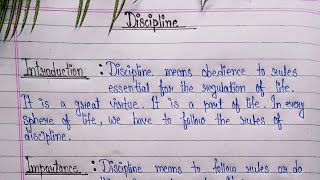 Discipline
Introduction : Discipline means obedience to rules
essential for the regulation of life.
It is a great virtue. It is a part of life. In every
sphere of life, we have to follow the rules of
discipline.
Importance : Discipline means to follow rules or do